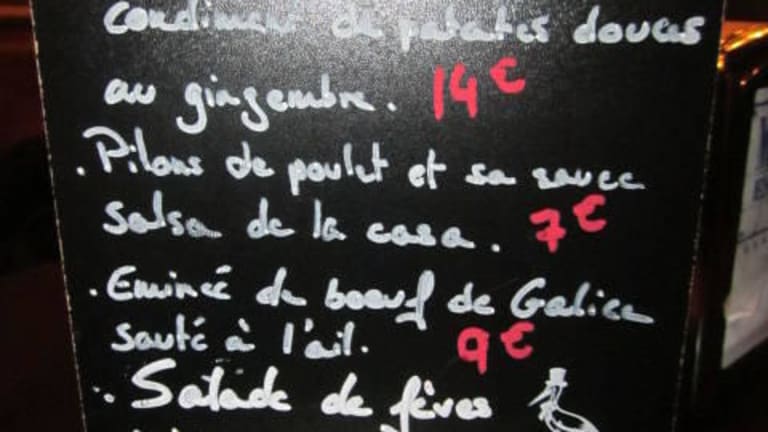 condiment de patates douces
au gingembre. 14€
. Pilons de poulet et sa sauce
salsa de la casa. 7€
. Emincé de boeuf de Galice
sauté à l'ail. 9€
. Salade de fèves